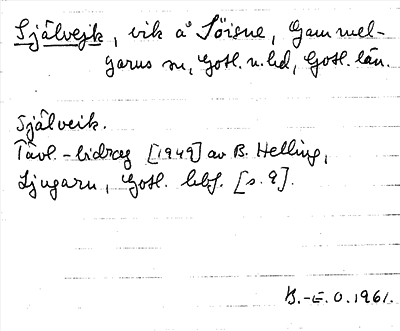 Självejk, vik å Söisne, Gammel-
garns sn, Gotl. n. hd, Gotl. län.
Själveik.
Tävl.-bidrag [1949] av B. Helling,
Ljugarn, Gotl. hbf. [s. 9].
B.-E. O. 1961.